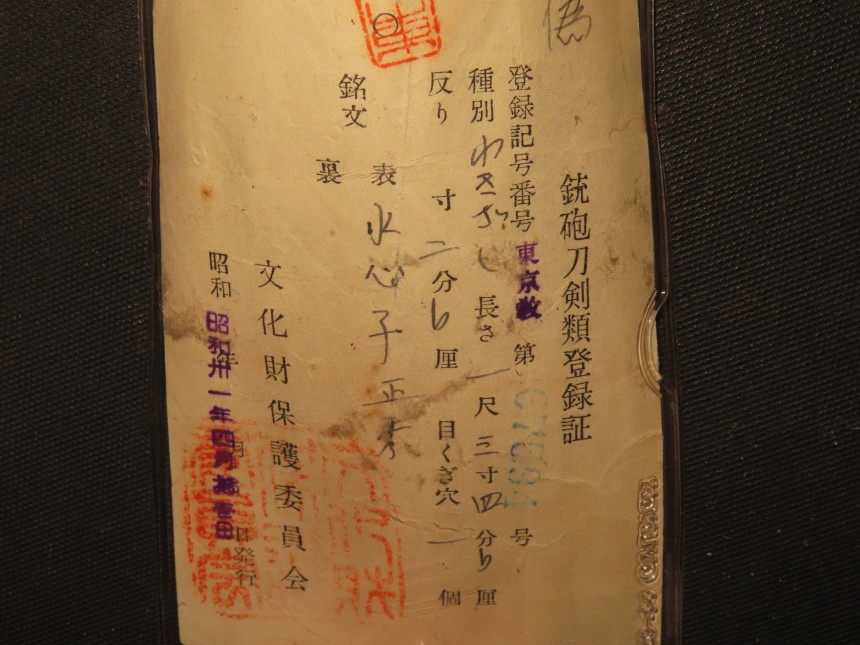 偽
銃砲刀剣類登録証
登録記号番号 東京教 第 67594 号
種別 わきざし 長さ 一尺三寸四分 厘
反り 寸二分 厘 目くぎ穴 一個
銘文 表 水心子正秀
裏
文化財保護委員会
昭和 年 月 日発行
昭和卅一年四月拾壱日